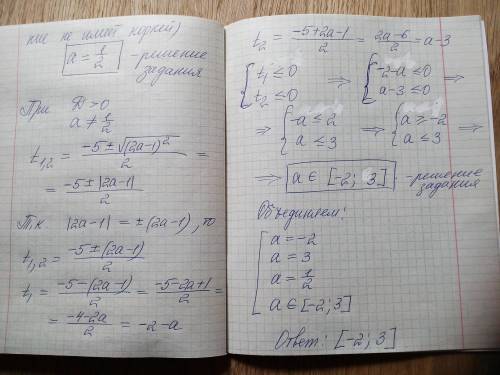 ние не имеет корней)
a = 1/2 - решение
задания
При D > 0
a ≠ 1/2
t₁,₂ = (-5 ± √(2a-1)²)/2 =
= (-5 ± |2a-1|)/2
Т.к. |2a-1| = ±(2a-1), то
t₁,₂ = (-5 ± (2a-1))/2
t₁ = (-5-(2a-1))/2 = (-5-2a+1)/2 =
= (-4-2a)/2 = -2-a
t₂ = (-5+2a-1)/2 = (2a-6)/2 = a-3
{ t₁ ≤ 0 ⇒ { -2-a ≤ 0 ⇒
{ t₂ ≤ 0 { a-3 ≤ 0
⇒ { -a ≤ 2 ⇒ { a ≥ -2 ⇒
{ a ≤ 3 { a ≤ 3
⇒ a ∈ [-2; 3] - решение
задания
Объединяем:
[ a = -2
a = 3
a = 1/2
a ∈ [-2; 3]
Ответ: [-2; 3]